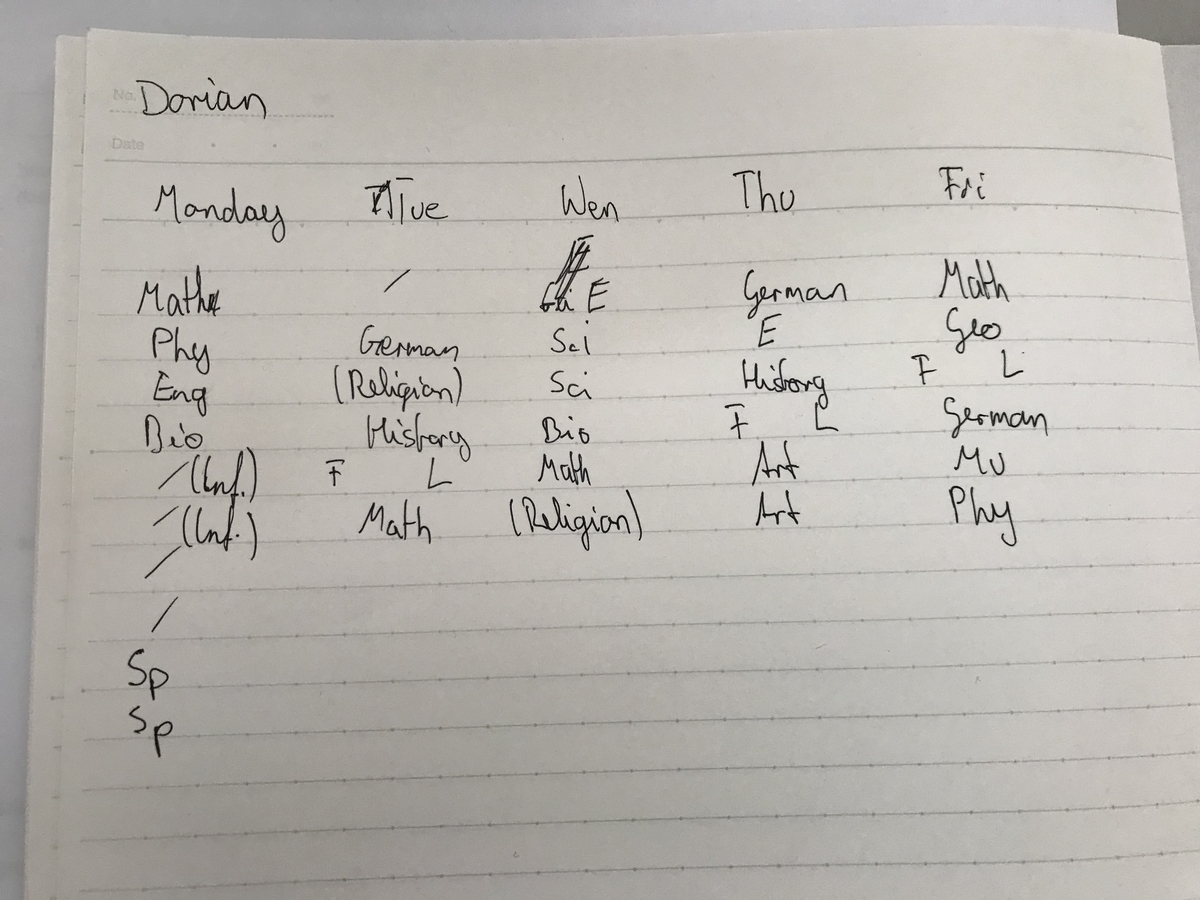 No. Dorian
Date
Monday Tue Wen Thu Fri
Math / E German Math
Phy German Sci E Geo
Eng (Religion) Sci History F L
Bio History Bio F L German
/ (Inf.) F L Math Art Mu
/ (Inf.) Math (Religion) Art Phy
/
/
Sp
Sp